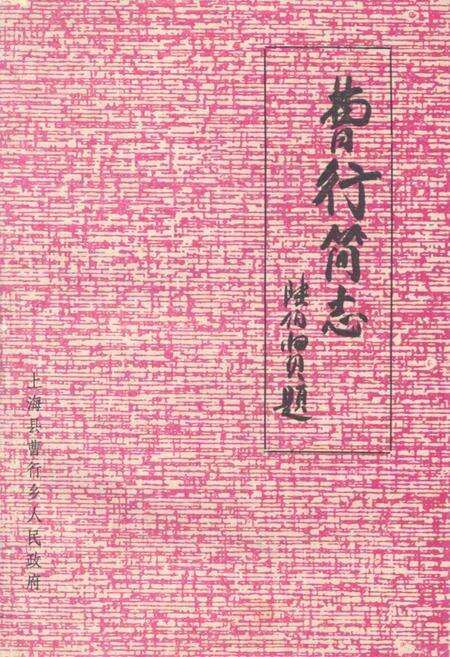 曹行简志
陆伯贤题
上海县曹行乡人民政府